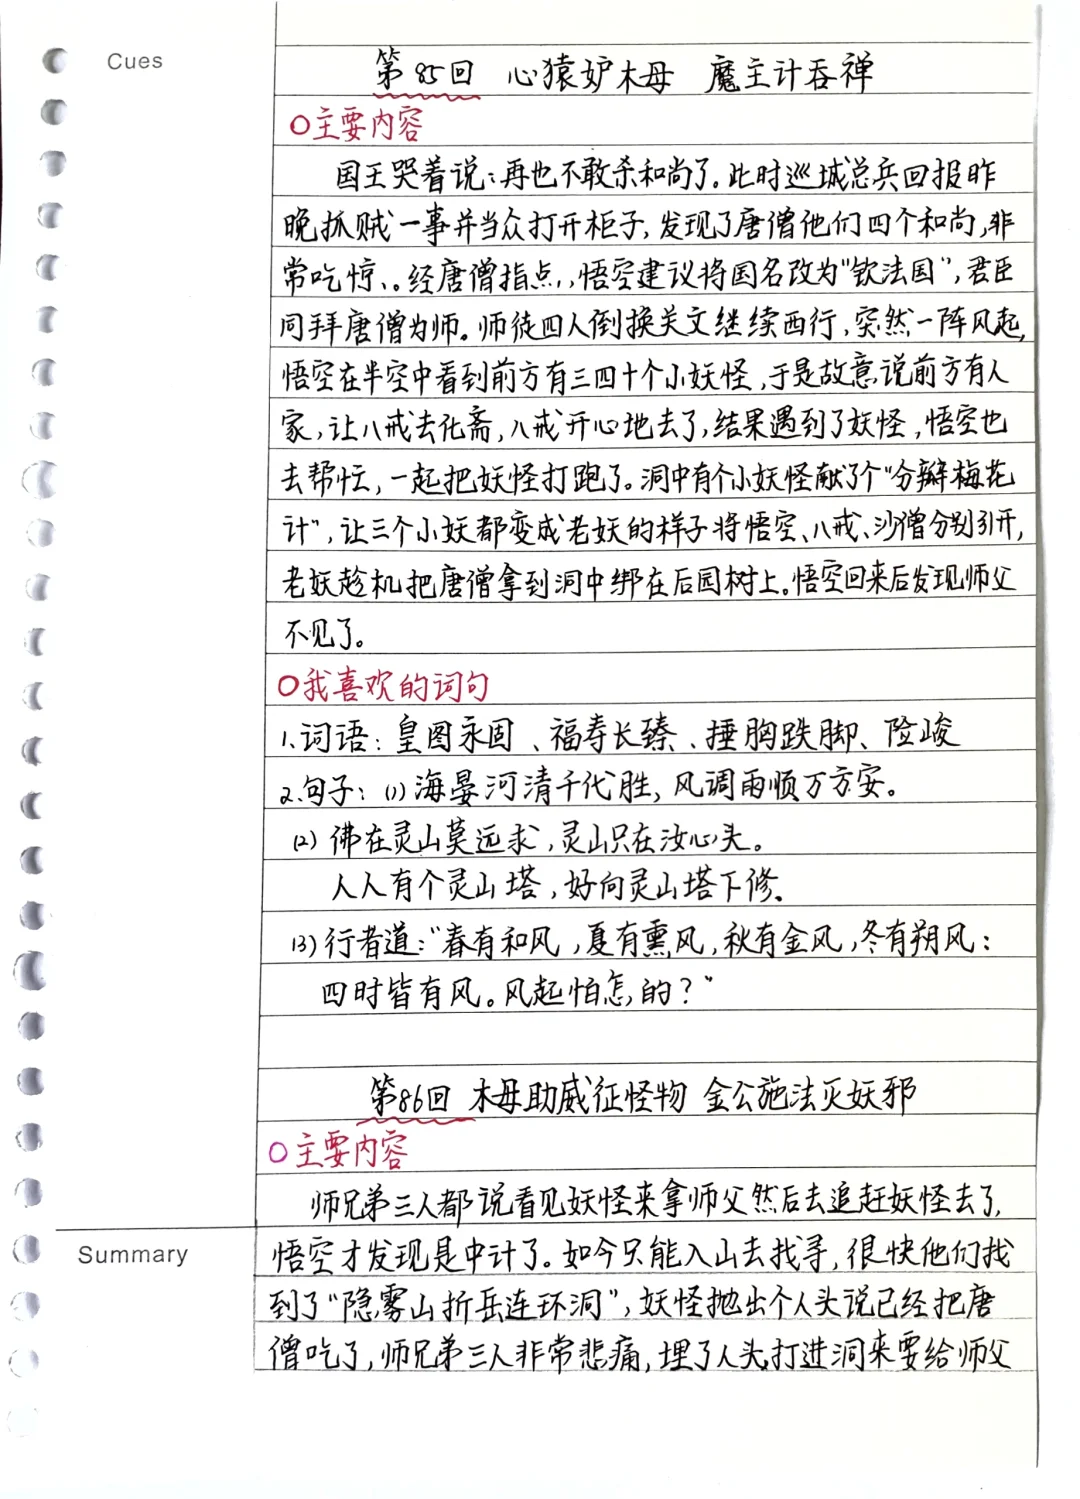 Cues
第85回 心猿妒木母 魔主计吞禅
○主要内容
国王哭着说:再也不敢杀和尚了。此时巡城总兵回报昨
晚抓贼一事并当众打开柜子,发现了唐僧他们四个和尚,非
常吃惊、。经唐僧指点,,悟空建议将国名改为"钦法国",君臣
同拜唐僧为师。师徒四人倒换关文继续西行,突然一阵风起,
悟空在半空中看到前方有三四十个小妖怪,于是故意说前方有人
家,让八戒去化斋,八戒开心地去了,结果遇到了妖怪,悟空也
去帮忙,一起把妖怪打跑了。洞中有个小妖怪献了个"分瓣梅花
计",让三个小妖都变成老妖的样子将悟空、八戒、沙僧分别引开,
老妖趁机把唐僧拿到洞中绑在后园树上。悟空回来后发现师父
不见了。
○我喜欢的词句
1.词语:皇图永固、福寿长臻、捶胸跌脚、险峻
2.句子:(1)海晏河清千代胜,风调雨顺万方安。
(2)佛在灵山莫远求,灵山只在汝心头。
人人有个灵山塔,好向灵山塔下修。
(3)行者道:"春有和风,夏有熏风,秋有金风,冬有朔风:
四时皆有风。风起怕怎的?"
第86回 木母助威征怪物 金公施法灭妖邪
○主要内容
师兄弟三人都说看见妖怪来拿师父然后去追赶妖怪去了,
Summary
悟空才发现是中计了。如今只能入山去找寻,很快他们找
到了"隐雾山折岳连环洞",妖怪抛出个人头说已经把唐
僧吃了,师兄弟三人非常悲痛,埋了人头打进洞来要给师父